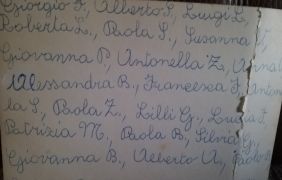 Giorgio F., Alberto S., Luigi L.,
Roberta L., Paola S., Susanna V.,
Giovanna P., Antonella Z., Anna
Alessandra B., Francesca F., Anton
la S., Paola Z., Lilli G., Lucia F.
Patrizia M., Paola B., Silvia G.,
Giovanna B., Alberto A., Paolo